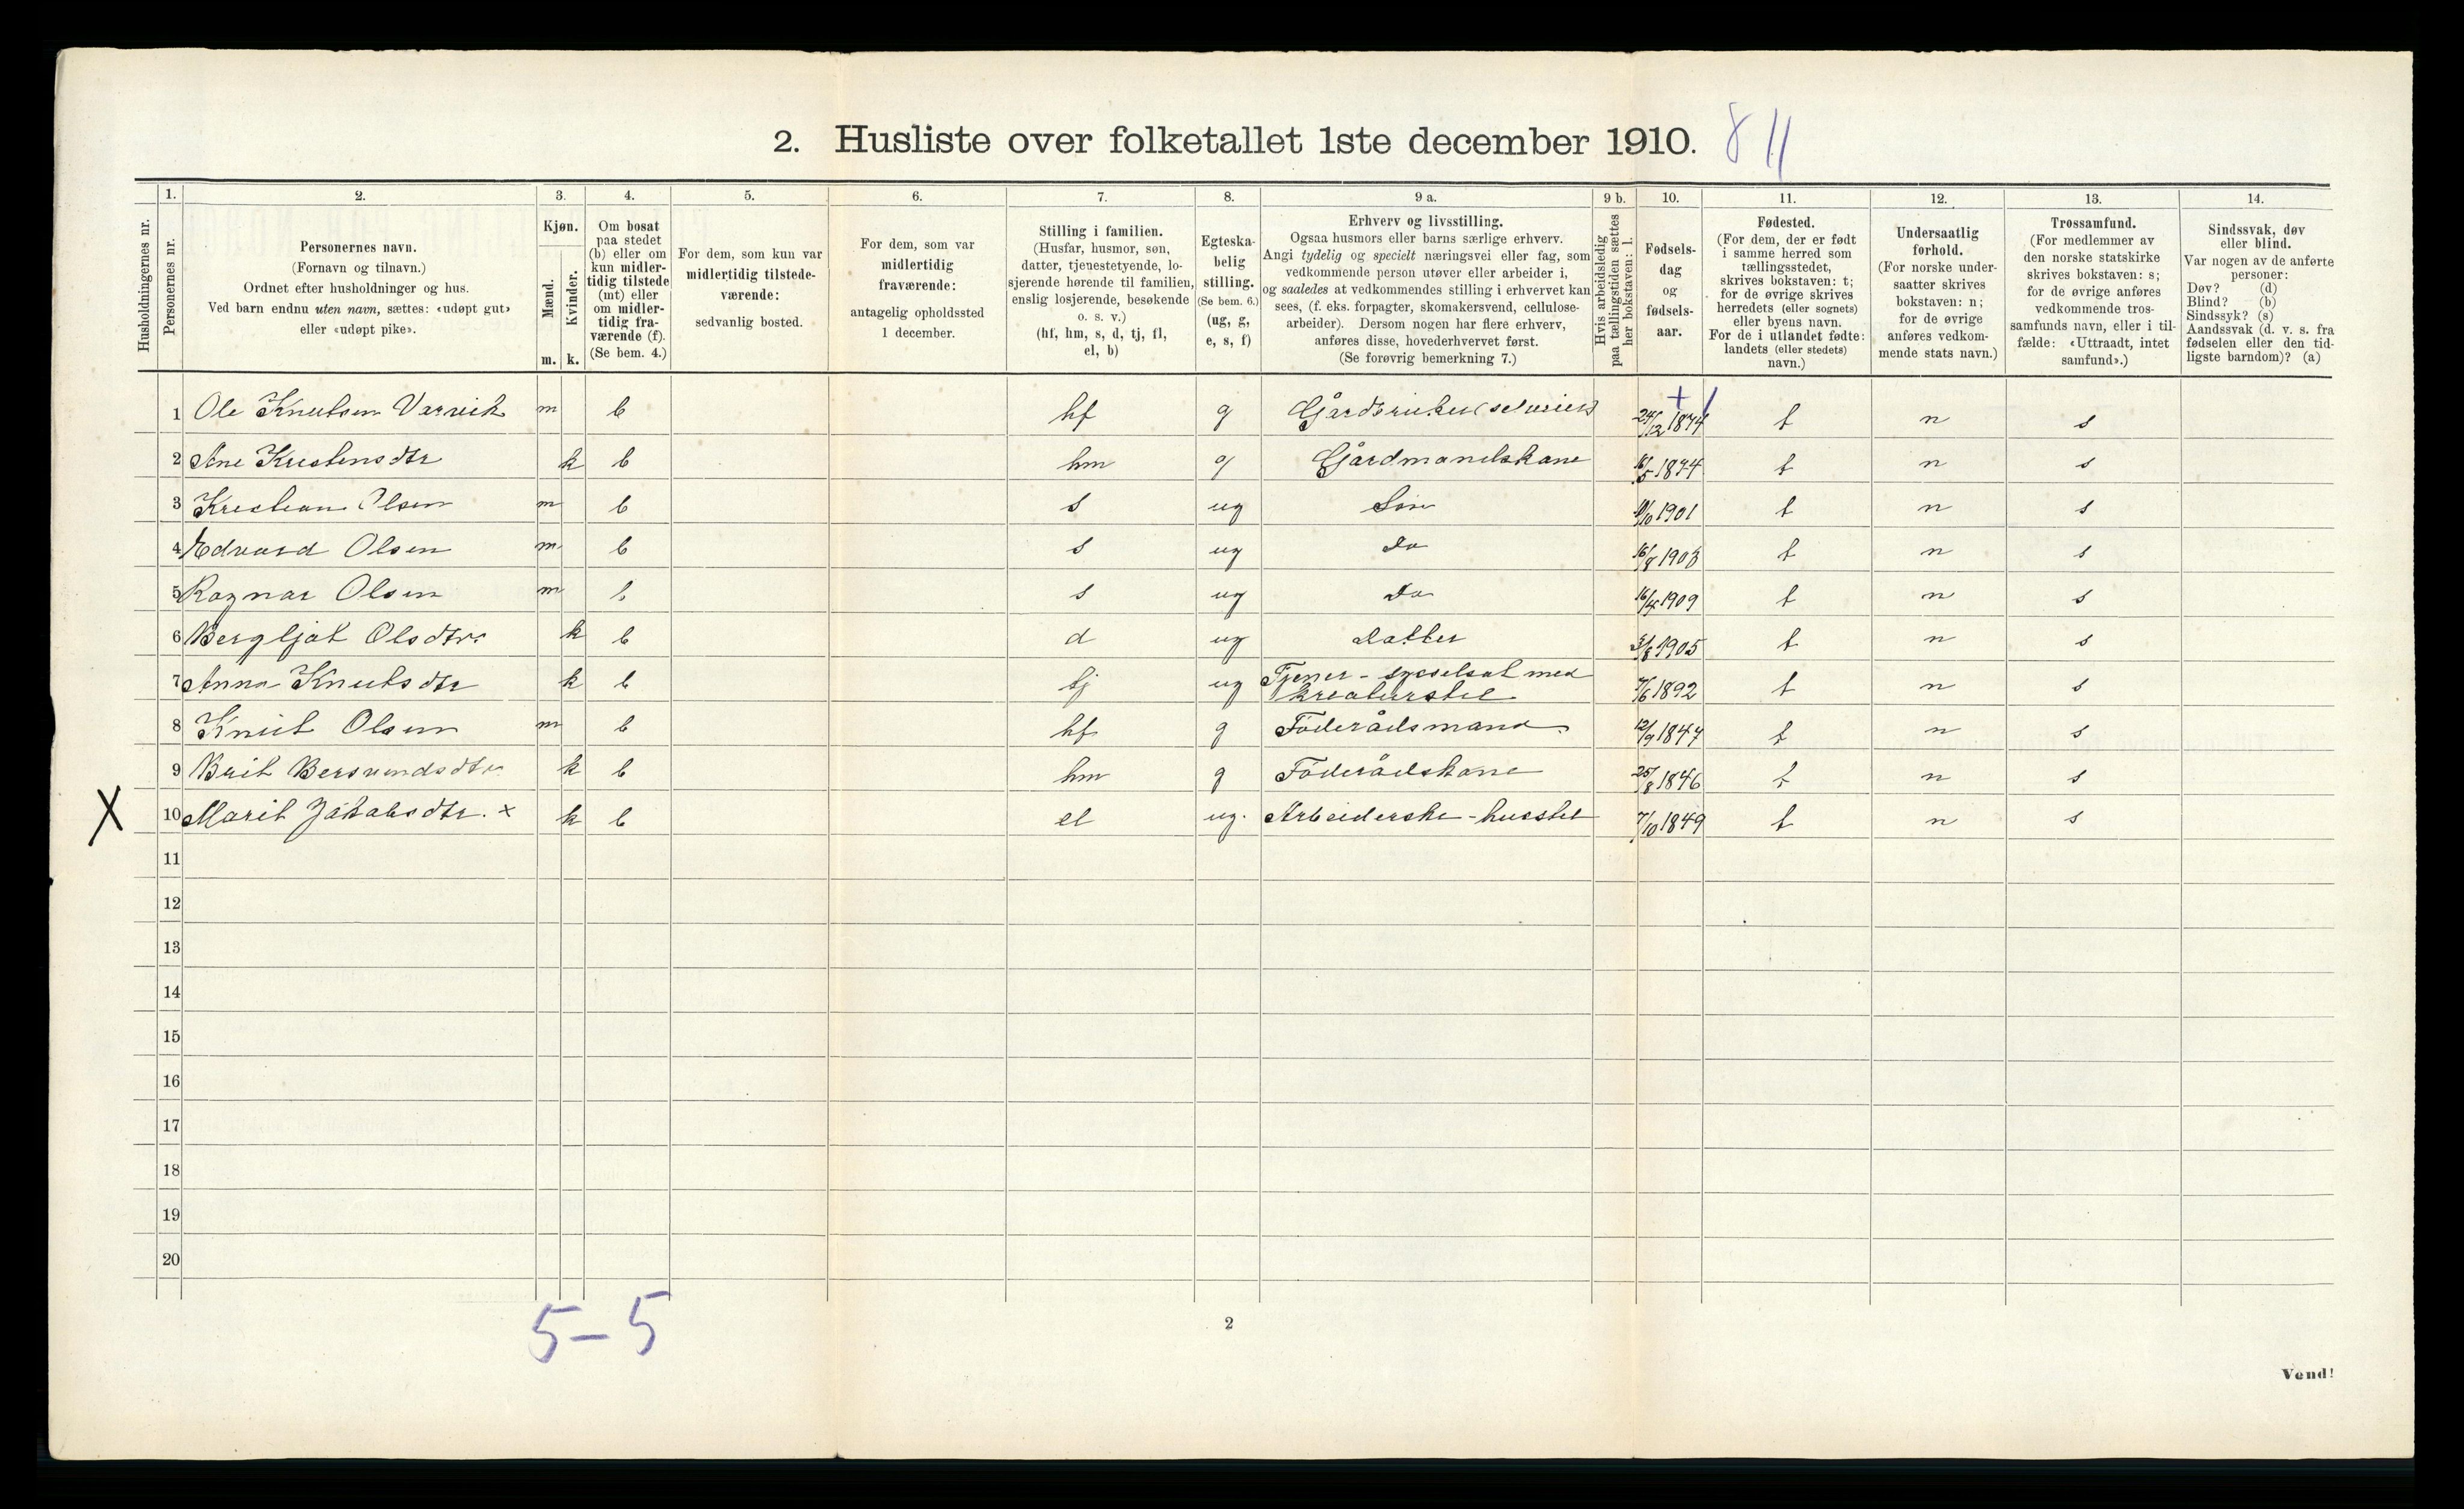 2. Husliste over folketallet 1ste december 1910. 811
Husholdningernes nr.
1.
Personernes nr.
2.
Personernes navn.
(Fornavn og tilnavn.)
Ordnet efter husholdninger og hus.
Ved barn endnu uten navn, sættes: «udøpt gut»
eller «udøpt pike».
3.
Kjøn.
Mænd.
Kvinder.
m. k.
4.
Om bosat
paa stedet
(b) eller om
kun midler-
tidig tilstede
(mt) eller
om midler-
tidig fra-
værende (f).
(Se bem. 4.)
5.
For dem, som kun var
midlertidig tilstede-
værende:
sedvanlig bosted.
6.
For dem, som var
midlertidig
fraværende:
antagelig opholdssted
1 december.
7.
Stilling i familien.
(Husfar, husmor, søn,
datter, tjenestetyende, lo-
sjerende hørende til familien,
enslig losjerende, besøkende
o. s. v.)
(hf, hm, s, d, tj, fl,
el, b)
8.
Egteska-
belig
stilling.
(Se bem. 6.)
(ug, g,
e, s, f)
9 a.
Erhverv og livsstilling.
Ogsaa husmors eller barns særlige erhverv.
Angi tydelig og specielt næringsvei eller fag, som
vedkommende person utøver eller arbeider i,
og saaledes at vedkommendes stilling i erhvervet kan
sees, (f. eks. forpagter, skomakersvend, cellulose-
arbeider). Dersom nogen har flere erhverv,
anføres disse, hovederhvervet først.
(Se forøvrig bemerkning 7.)
9 b.
Hvis arbeidsledig
paa tællingstiden sættes
her bokstaven: l.
10.
Fødsels-
dag
og
fødsels-
aar.
11.
Fødested.
(For dem, der er født
i samme herred som
tællingsstedet,
skrives bokstaven: t;
for de øvrige skrives
herredets (eller sognets)
eller byens navn.
For de i utlandet fødte:
landets (eller stedets)
navn.)
12.
Undersaatlig
forhold.
(For norske under-
saatter skrives
bokstaven: n;
for de øvrige
anføres vedkom-
mende stats navn.)
13.
Trossamfund.
(For medlemmer av
den norske statskirke
skrives bokstaven: s;
for de øvrige anføres
vedkommende tros-
samfunds navn, eller i til-
fælde: «Uttraadt, intet
samfund».)
14.
Sindssvak, døv
eller blind.
Var nogen av de anførte
personer:
Døv? (d)
Blind? (b)
Sindssyk? (s)
Aandssvak (d. v. s. fra
fødselen eller den tid-
ligste barndom)? (a)
1 Ole Knutsen Varvik m b hf g Gårdbruker (selveier) 24/12 1874 t n s
2 Ane Kristensdtr k b hm g Gårdmandskone 1874 t n s
3 Kristian Olsen m b s ug Søn 1901 t n s
4 Edvard Olsen m b s ug Do 16/8 1903 t n s
5 Ragnar Olsen m b s ug Do 16/4 1909 t n s
6 Bergljot Olsdtr k b d ug Datter 1905 t n s
7 Anna Knutsdtr k b tj ug Tjener - sysselsat med
kreaturstel 7/6 1892 t n s
8 Knut Olsen m b hf g Föderådsmand 12/9 1847 t n s
9 Brit Bersvendsdtr k b hm g Föderådskone 25/8 1846 t n s
X 10 Marit Jakobsdtr. x k b el ug. Arbeiderske - husstel 7/10 1849 t n s
11
12
13
14
15
16
17
18
19
20
5-5
2
Vend!